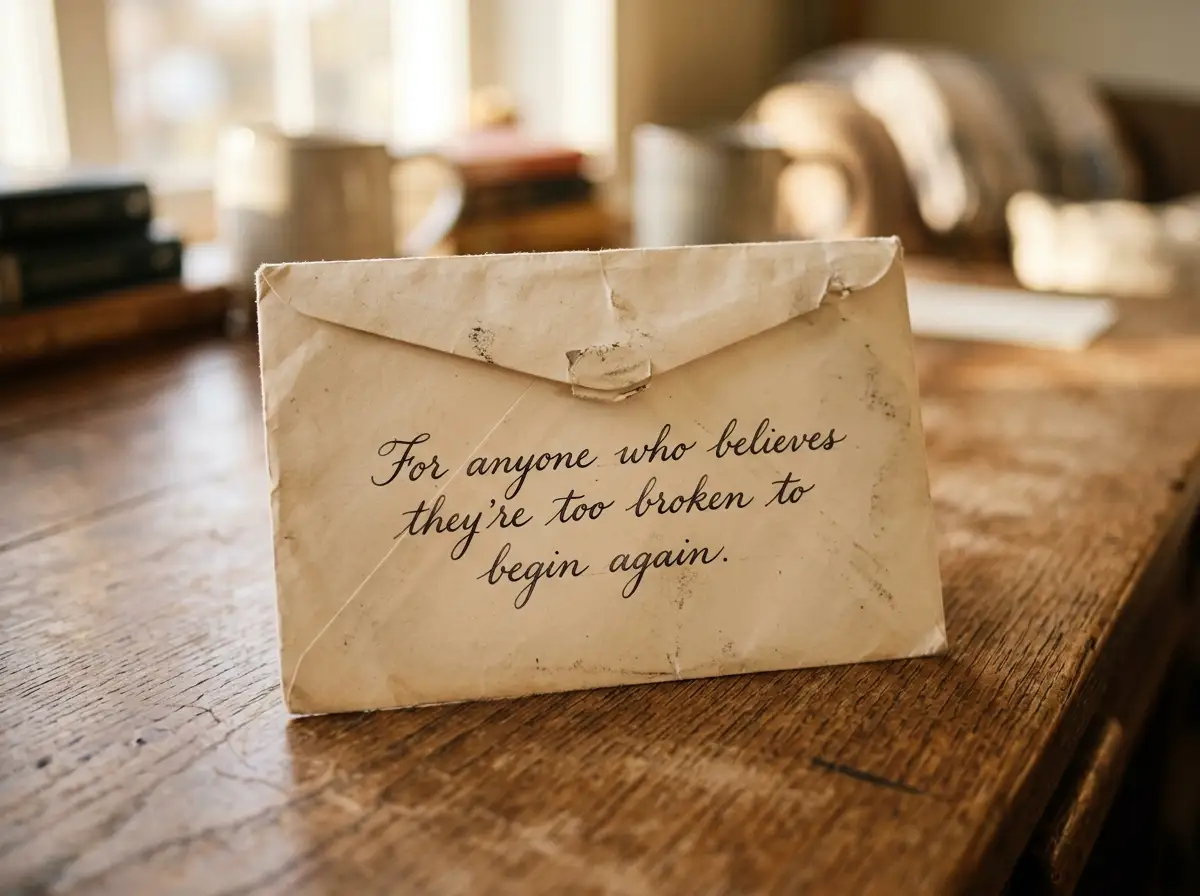 For anyone who believes
they're too broken to
begin again.